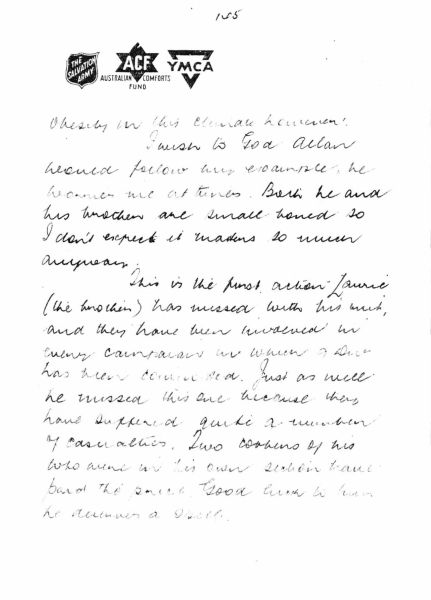 155
THE SALVATION ARMY
ACF
AUSTRALIAN COMFORTS FUND
YMCA
Obesity in this climate however!
I wish to God Allan
would follow his example, he
worries me at times. Both he and
his brother are small boned so
I don't expect it matters so much
anyway.
This is the first action Laurie
(the brother) has missed with his unit,
and they have been involved in
every campaign in which
has been committed. Just as well
he missed this one because they
have suffered quite a number
of casualties. Two cobbers of his
who were in his own section have
paid the price. Good luck to him
he deserves a spell.